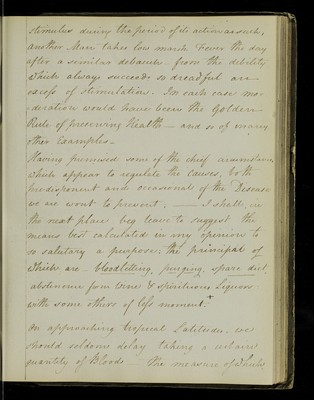 stimulus during the period of its action as such,
another Man takes low marsh Fever the day
after a similar debauch from the debility
which always succeeds so dreadful an
excess of stimulation. In each case mo-
deration would have been the Golden
Rule of preserving Health — and so of many
other Examples.
Having premised some of the chief circumstances
which appear to regulate the Causes, both
predisponent and occasional of the Disease
we are wont to prevent, — I shall, in
the next place beg leave to suggest the
means best calculated in my opinion to
so salutary a purpose; the principal of
which are bloodletting, purging, spare diet,
abstinence from Wine & Spirituous Liquors
with some others of less moment.+
On approaching tropical Latitudes, we
should seldom delay taking a certain
quantity of Blood — the measure of which